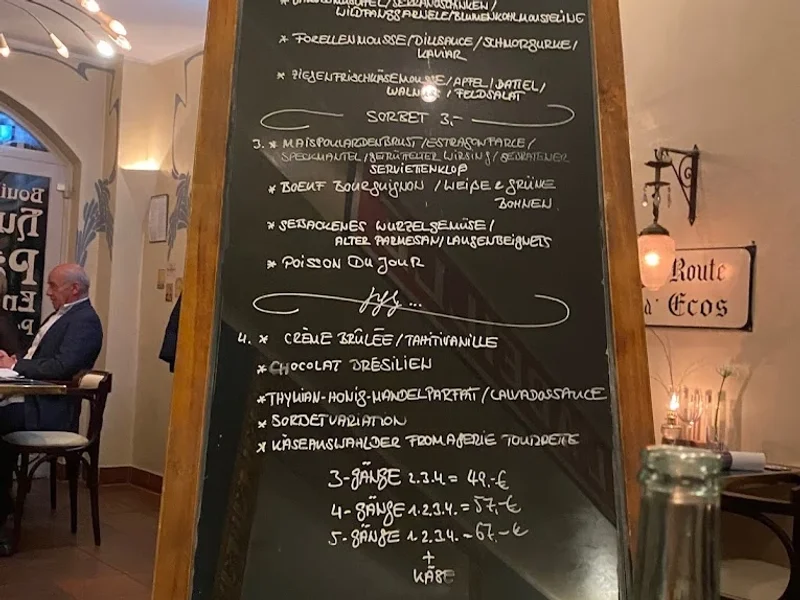 WILDFANGGARNELE/BLUMENKOHLMOUSSELINE
* FORELLENMOUSSE/DILLSAUCE/SCHMORGURKE/
KAVIAR
* ZIEGENFRISCHKÄSEMOUSSE/APFEL/DATTEL/
WALNUSS/FELDSALAT
SORBET 3,-
3. * MAISPOULARDENBRUST/ESTRAGONFARCE/
SPECKMANTEL/GETRÜFFELTER WIRSING/GEBRATENER
SERVIETENKLOß
* BOEUF BOURGUIGNON/WEIßE & GRÜNE
BOHNEN
* GEBACKENES WURZELGEMÜSE/
ALTER PARMESAN/LAUGENBEIGNETS
* POISSON DU JOUR
4. * CRÈME BRÛLÉE/TAHITIVANILLE
* CHOCOLAT BRESILIEN
* THYMIAN-HONIG-MANDELPARFAIT/CALVADOSSAUCE
* SORBETVARIATION
* KÄSEAUSWAHL DER FROMAGERIE TOURRETTE
3-GÄNGE 2.3.4. = 49,-€
4-GÄNGE 1.2.3.4. = 57,-€
5-GÄNGE 1.2.3.4. = 67,-€
+
KÄSE
Route
d' Ecos